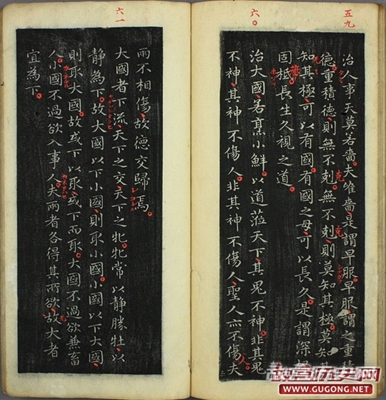 五九
治人事天莫若嗇夫唯嗇是謂早服早服謂之重積
德重積德則無不剋無不剋則莫知其極莫知
其極可以有國有國之母可以長久是謂深根
固柢長生久視之道
六〇
治大國若烹小鮮以道莅天下其鬼不神非其鬼
不神其神不傷人非其神不傷人聖人亦不傷夫
兩不相傷故德交歸焉
六一
大國者下流天下之交天下之牝牝常以靜勝牡以
靜為下故大國以下小國則取小國小國以下大國
則取大國故或下以取或下而取大國不過欲兼畜
人小國不過欲入事人夫兩者各得其所欲故大者
宜為下
WWW.GUGONG.NET